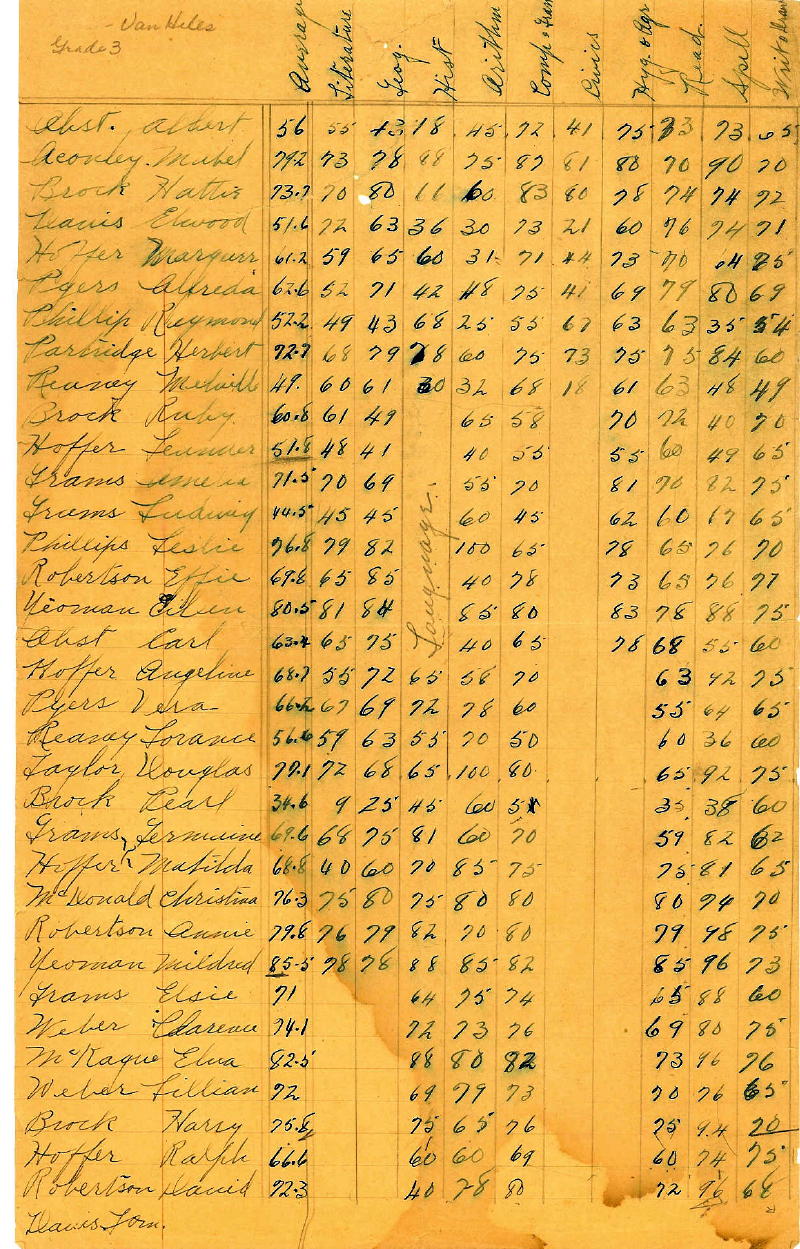 - Van Hees
Grade 3
Average Literature Geog. Hist Arithm Comp & Gram Civics Hyg. & Agr Read. Spell Writ & Draw
Abst. Albert 56 55 43 18 45 72 41 75 73 73 65
Aconley Mabel 79.2 73 78 88 75 87 81 80 70 90 70
Brock Hattie 73.7 70 80 66 60 83 80 78 74 74 72
Davis Elwood 51.6 72 63 36 30 73 21 60 76 74 71
Hoffer Marguerr 61.2 59 65 60 31 71 44 73 70 64 75
Pyers Alfreda 62.6 52 71 42 48 75 41 69 79 80 69
Phillip Raymond 52.2 49 43 68 25 55 67 63 63 35 54
Partridge Herbert 72.7 68 79 78 60 75 73 75 75 84 60
Reaney Melville 49. 60 61 30 32 68 18 61 63 48 49
Brock Ruby. 60.8 61 49 65 58 70 72 40 70
Hoffer Leander 51.8 48 41 40 55 55 60 49 65
Grams Amelia 71.5 70 69 55 70 81 70 82 75
Grams Ludwig 44.5 45 45 60 45 62 60 17 65
Phillips Leslie 76.8 79 82 100 65 78 65 76 70
Robertson Effie 69.8 65 85 40 78 73 65 76 77
Yeoman Eileen 80.5 81 84 85 80 83 78 88 75
Abst Carl 63.4 65 75 40 65 78 68 55 60
Language.
Hoffer Angeline 68.7 55 72 65 58 70 63 42 75
Pyers Vera 66.2 67 69 72 78 60 55 64 65
Reaney Lorance 56.6 59 63 55 70 50 60 36 60
Taylor, Douglas 77.1 72 68 65 100 80 65 92 75
Brock Pearl 34.6 9 25 45 60 51 35 38 60
Grams, Germaine 69.6 68 75 81 60 70 59 82 62
Hoffer Matilda 68.8 40 60 70 85 75 75 81 65
McDonald Christina 76.3 75 80 75 80 80 80 74 70
Robertson Annie 79.8 76 79 82 70 80 79 98 75
Yeoman Mildred 85.5 78 78 88 85 82 85 96 73
Grams Elsie 71 64 75 74 65 88 60
Weber Clarence 74.1 72 73 76 69 80 75
McKague Elva 82.5 88 80 82 73 96 76
Weber Lillian 72 69 79 73 70 76 65
Brock Harry 75.8 75 65 76 75 94 70
Hoffer Ralph 66.6 60 60 69 60 74 75
Robertson David 72.3 40 78 80 72 96 68
Davis Tom.